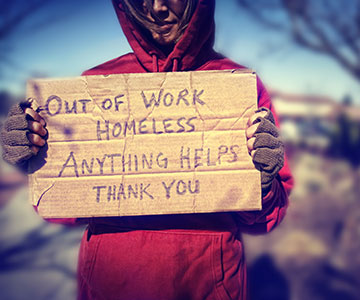 OUT OF WORK
HOMELESS
ANYTHING HELPS
THANK YOU